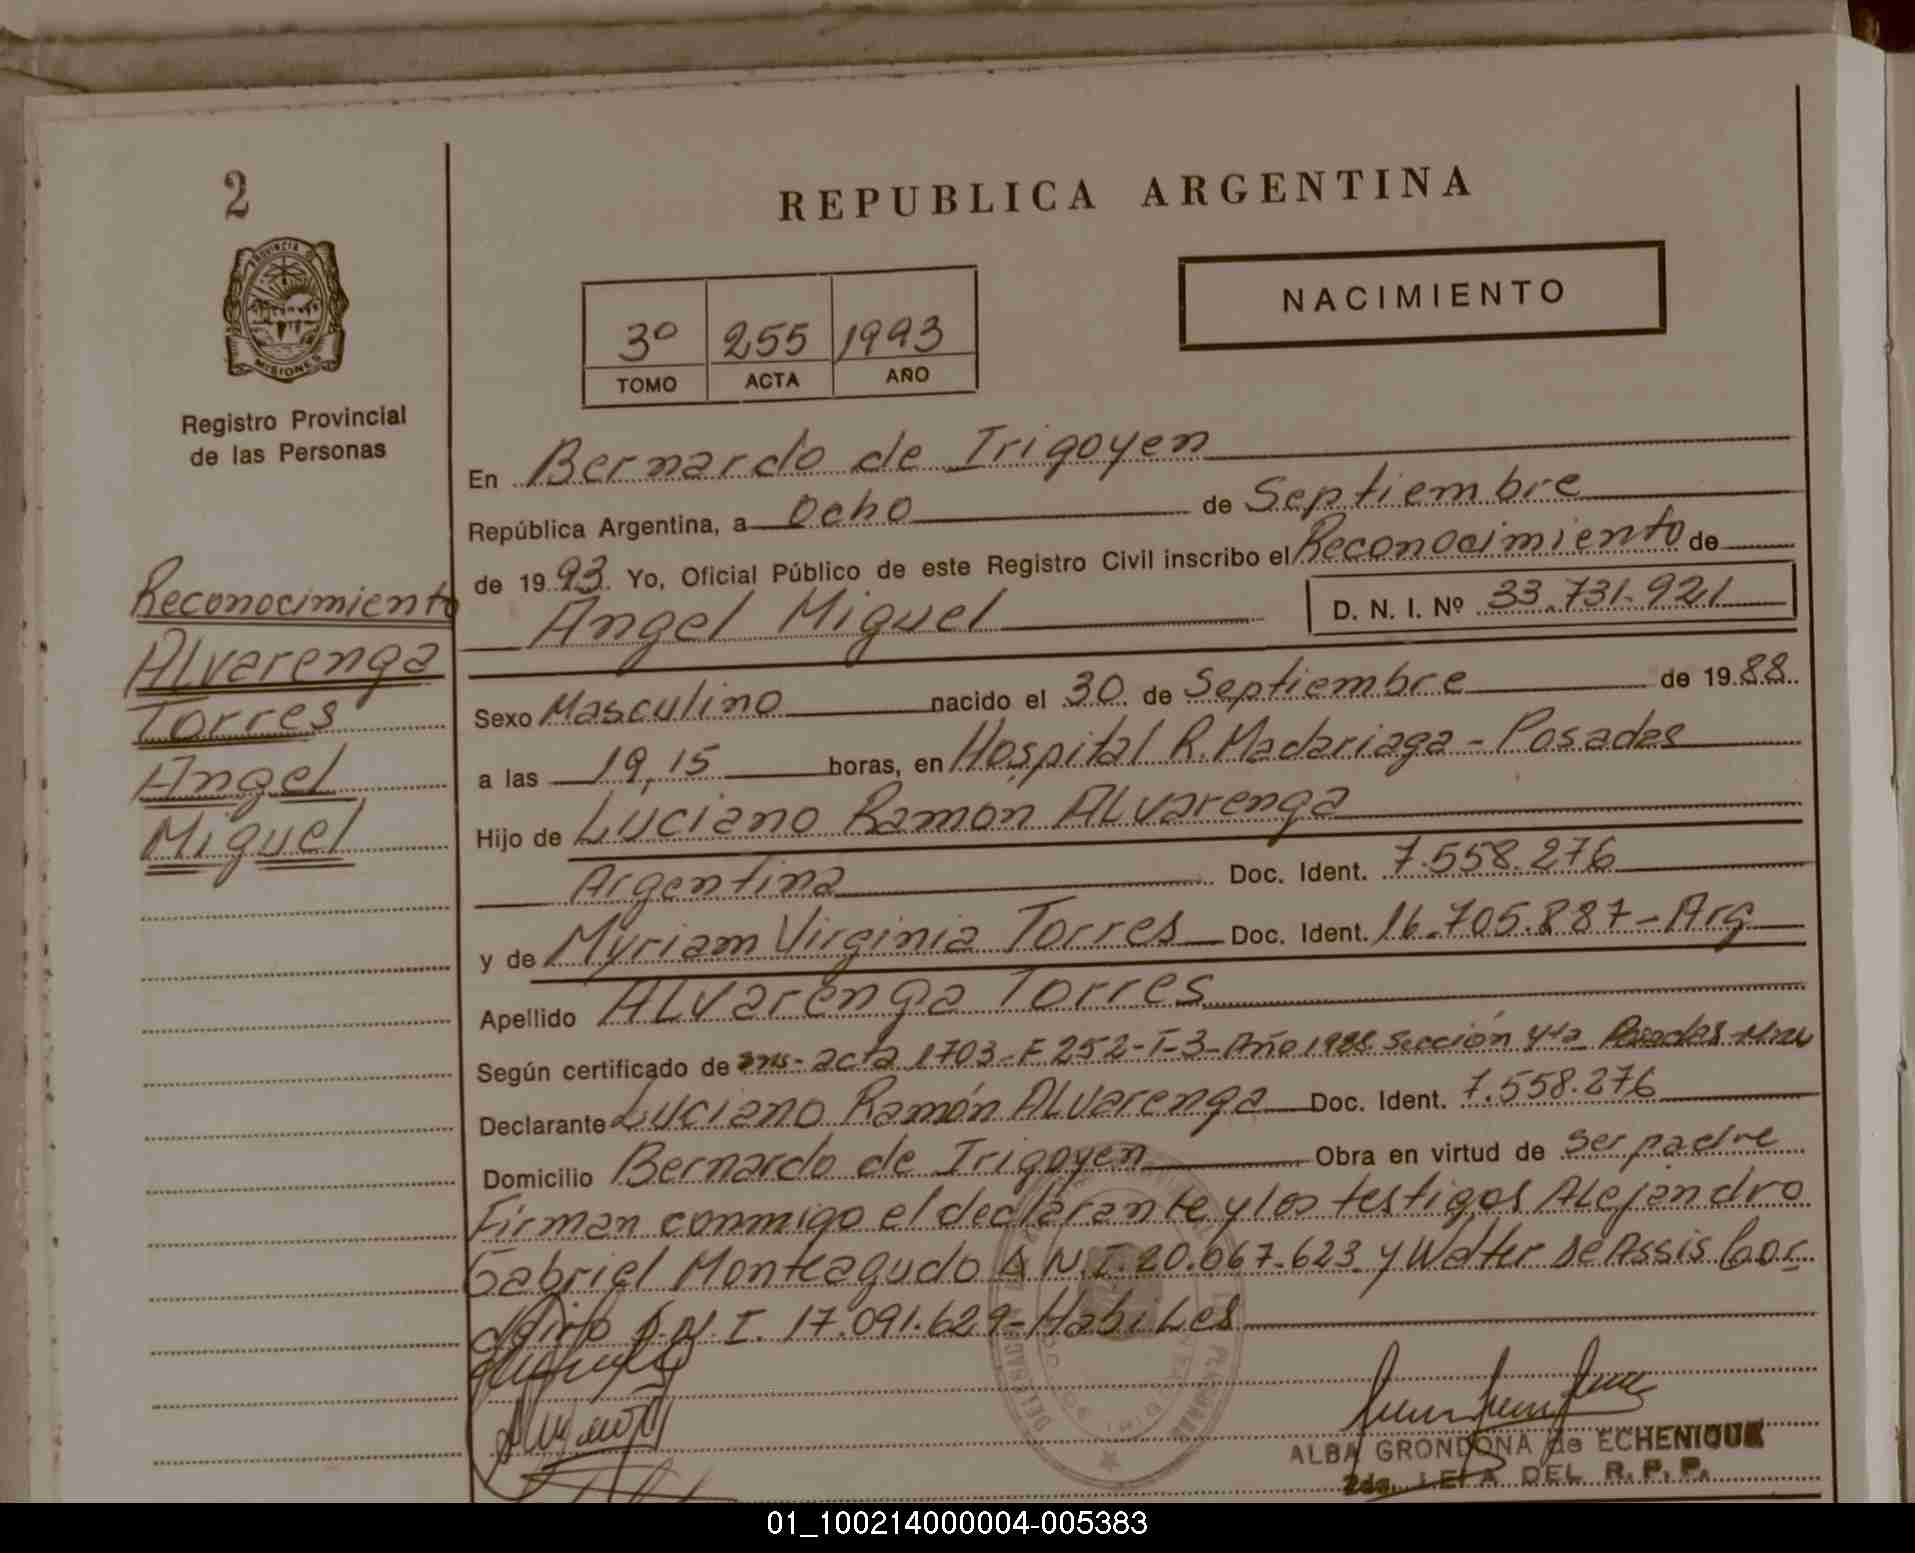 2
REPUBLICA ARGENTINA
PROVINCIA DE
MISIONES
Registro Provincial
de las Personas
NACIMIENTO
3º 255 1993
TOMO ACTA AÑO
Reconocimiento
Alvarenga
Torres
Angel
Miguel
En Bernardo de Irigoyen
República Argentina, a Ocho de Septiembre
de 1993. Yo, Oficial Público de este Registro Civil inscribo el Reconocimiento de
Angel Miguel D. N. I. Nº 33.731.921
Sexo Masculino nacido el 30 de Septiembre de 1988
a las 19,15 horas, en Hospital R. Madariaga - Posadas
Hijo de Luciano Ramon Alvarenga
Argentina Doc. Ident. 7.558.276
y de Myriam Virginia Torres Doc. Ident. 16.705.887 - Arg
Apellido Alvarenga Torres
Según certificado de ins- acta 1703-F 252-T-3-Año 1988 Sección 4ta Posadas
Declarante Luciano Ramón Alvarenga Doc. Ident. 7.558.276
Domicilio Bernardo de Irigoyen Obra en virtud de ser padre
Firman conmigo el declarante y los testigos Alejandro
Gabriel Monteagudo D.N.I. 20.067.623 y Walter de Assis
D.N.I. 17.091.629 - Habiles
ALBA GRONDONA de ECHENIQUE
2da. JEFA DEL R. P. P.
01_100214000004-005383